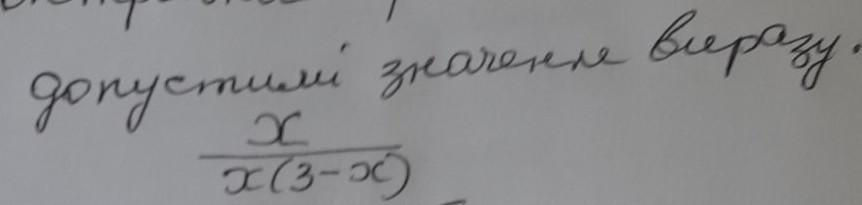 допустимі значення виразу.
x
x(3-x)